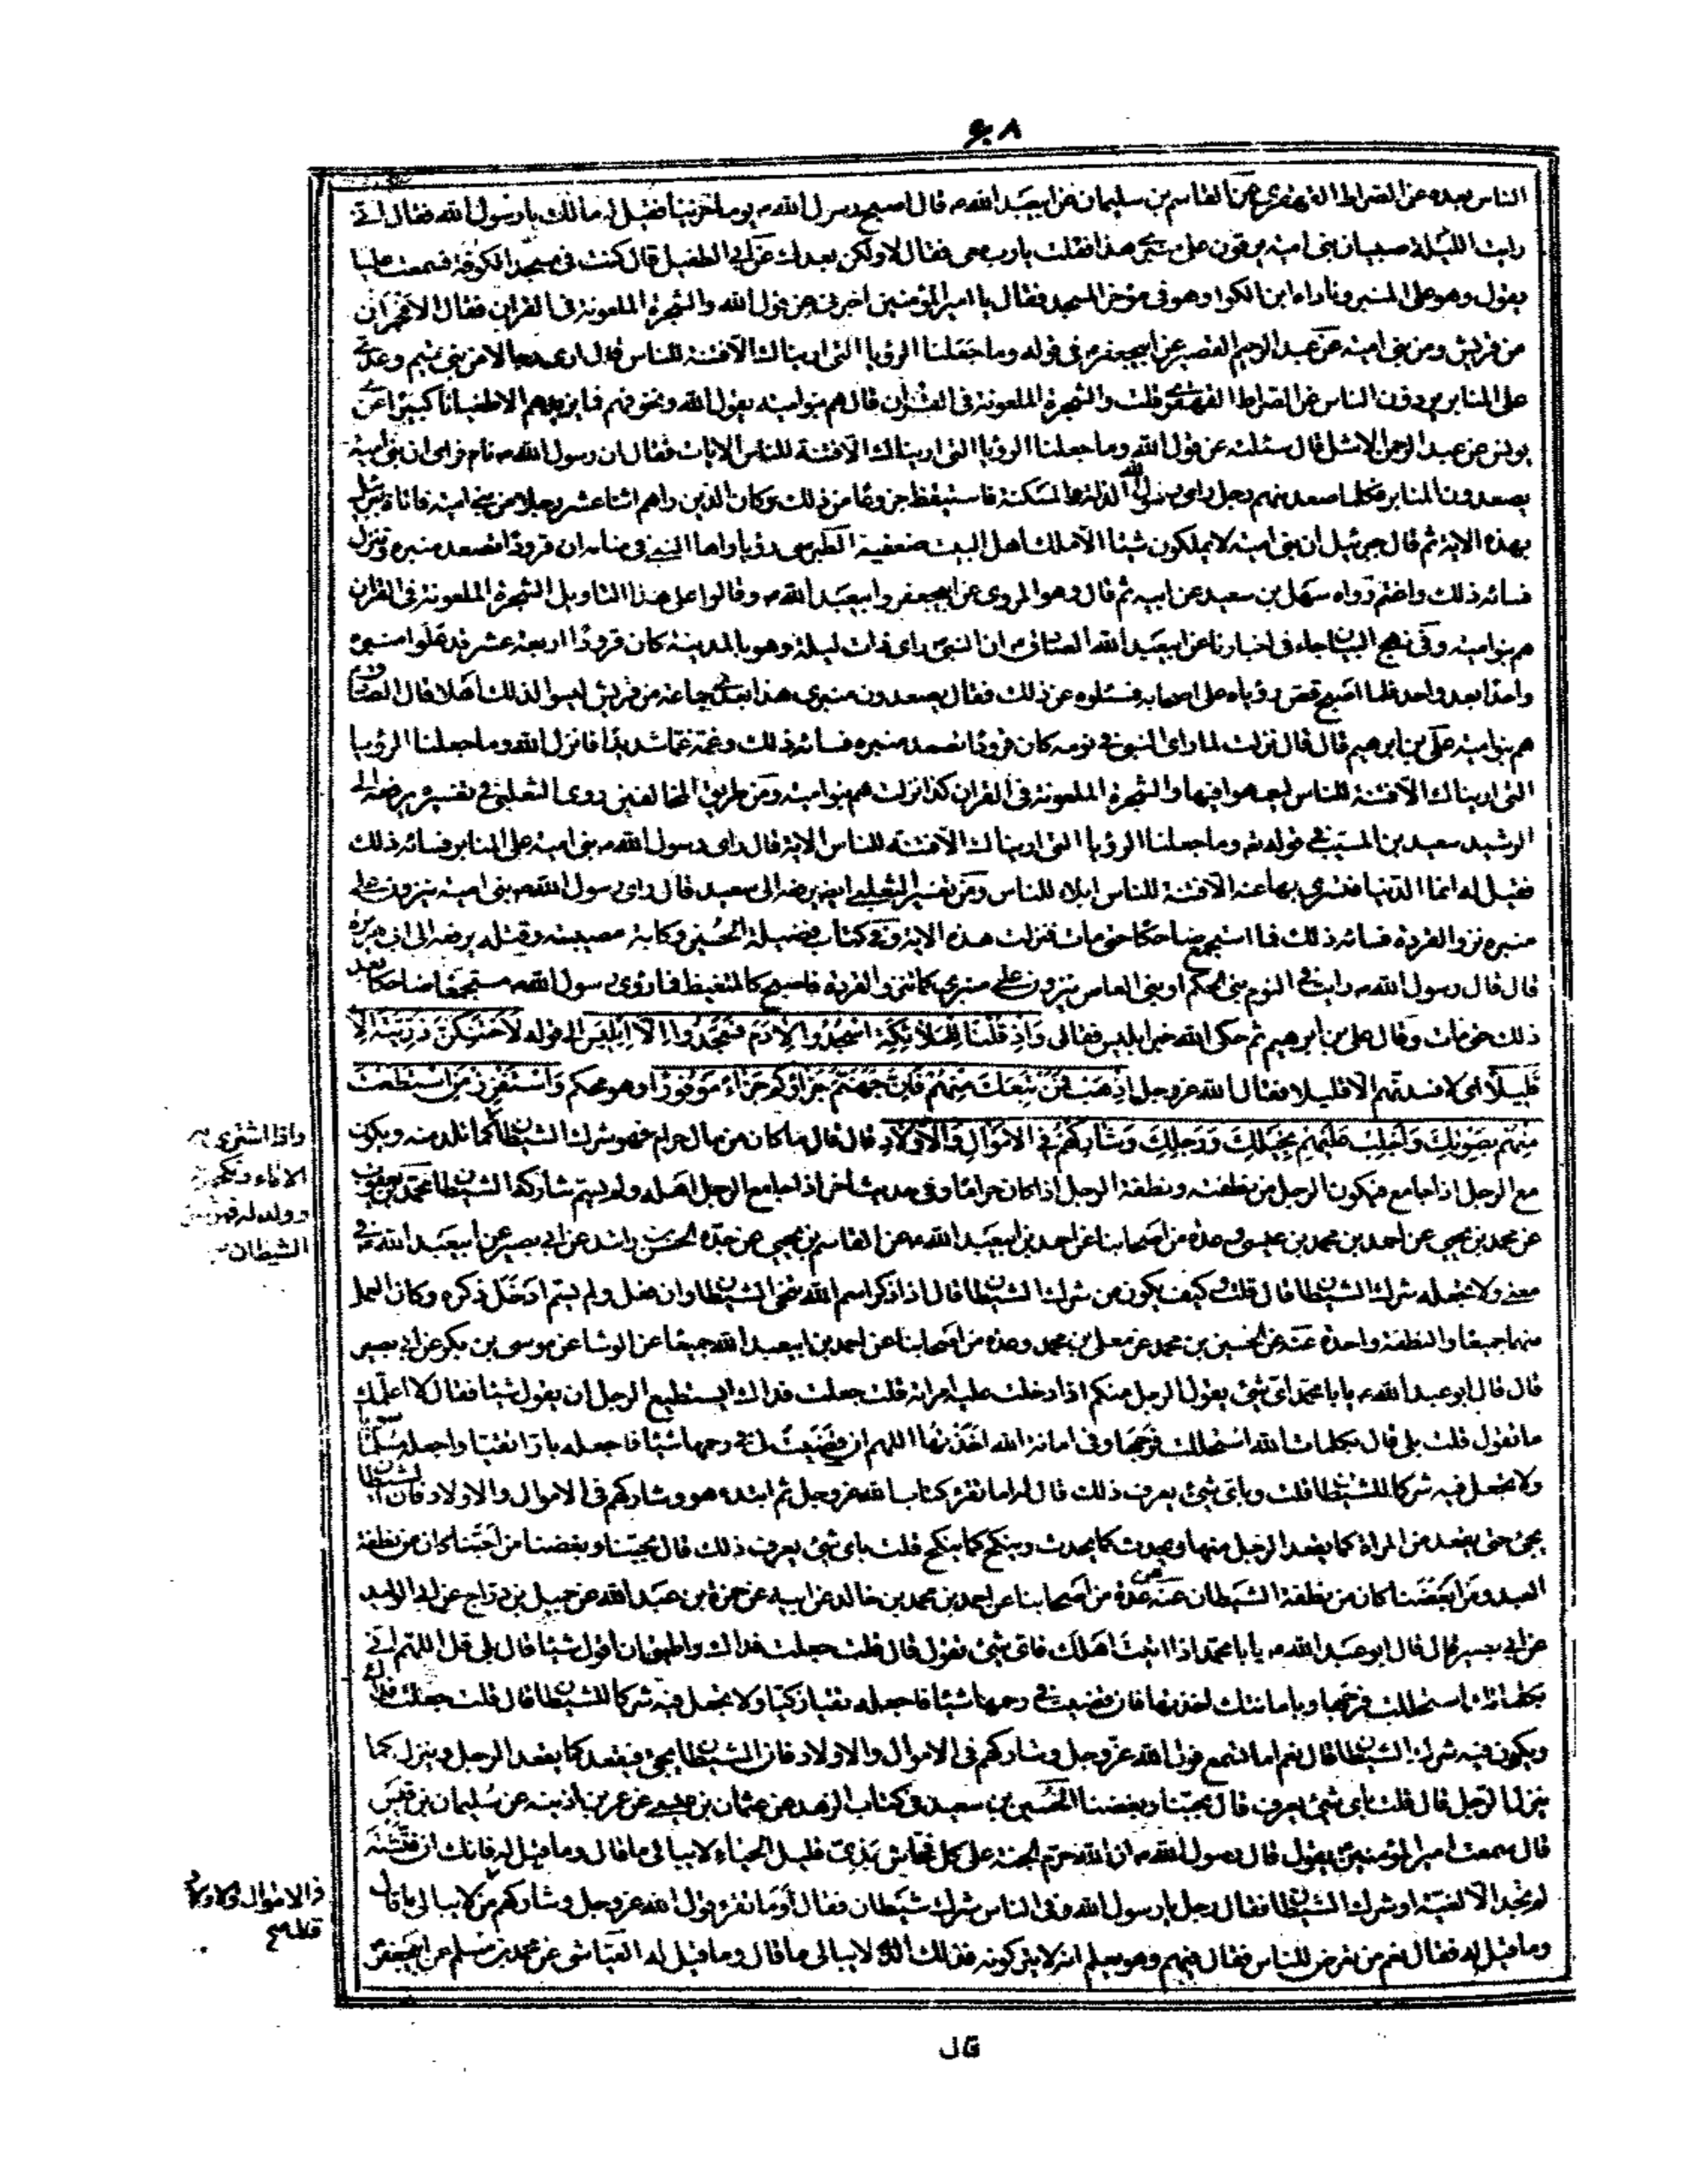 الناس بعده عن الصراط القهقرى عن القاسم بن سليمان عن ابيعبد الله ع قال اصبح رسول الله ص يوما حزينا فقيل له مالك يا رسول الله فقال انى
رايت الليلة صبيان بنى امية يرقون على منبرى هذا فقلت يا رب معى فقال لا ولكن بعدك عن ابى الطفيل قال كنت فى مسجد الكوفة فسمعت عليا
يقول وهو على المنبر وناداه ابن الكوا وهو فى مؤخر المسجد فقال يا امير المؤمنين اخبرنى عن قول الله والشجرة الملعونة فى القران فقال الافجران
من قريش ومن بنى امية عن عبد الرحيم القصير عن ابيجعفر ع فى قوله وما جعلنا الرؤيا التى اريناك الا فتنة للناس قال ارى رجالا من بنى تيم وعدى
على المنابر يردون الناس عن الصراط القهقرى قلت والشجرة الملعونة فى القران قال هم بنو امية يقول الله ونخوفهم فما يزيدهم الا طغيانا كبيرا عن
يونس عن عبد الرحمن الاشل قال سئلته عن قول الله وما جعلنا الرؤيا التى اريناك الا فتنة للناس الايات فقال ان رسول الله ص نام فراى ان بنى امية
يصعدون المنابر فكلما صعد منهم رجل راى رسول الله الذلة والمسكنة فاستيقظ جزوعا من ذلك وكان الذين راهم اثنا عشر رجلا من بنى امية فاتاه جبرئيل
بهذه الاية ثم قال جبرئيل ان بنى امية لا يملكون شيئا الا ملك اهل البيت ضعفيه الطبرسى رؤيا راها النبى فى منامه ان قرودا تصعد منبره وتنزل
فسائه ذلك واغتم رواه سهل بن سعيد عن ابيه ثم قال وهو المروى عن ابيجعفر وابيعبد الله ع وقالوا على هذا التاويل الشجرة الملعونة فى القران
هم بنو امية وفى نهج البيان جاء فى اخبارنا عن ابيعبد الله الصادق ع ان النبى راى ذات ليلة وهو بالمدينة كان قرودا اربعة عشر قد علوا منبره
واحدا بعد واحد فلما اصبح قص رؤياه على اصحابه فسئلوه عن ذلك فقال يصعدون منبرى هذا بعدى جماعة من قريش ليسوا لذلك اهلا قال الصادق
هم بنو امية على بن ابرهيم قال قال نزلت لما راى النبى فى نومه كان قرودا تصعد منبره فسائه ذلك وغمه غما شديدا فانزل الله وما جعلنا الرؤيا
التى اريناك الا فتنة للناس ليعمهوا فيها والشجرة الملعونة فى القران كذا نزلت هم بنو امية ومن طريق المخالفين روى الثعلبى فى تفسيره يرفعه الى
الرشيد سعيد بن المسيب فى قوله تع وما جعلنا الرؤيا التى اريناك الا فتنة للناس الاية قال راى رسول الله ص بنى امية على المنابر فسائه ذلك
فقيل له انما الدنيا فسرى بها عنه الا فتنة للناس ابلاء للناس ومن تفسير الثعلبى ايض يرفعه الى سعيد قال راى رسول الله ص بنى امية ينزون على
منبره نزو القردة فسائه ذلك فما استجمع ضاحكا حتى مات فنزلت هذه الاية وفى كتاب فضيلة الحسين وكابة مصيبته وقتله يرفعه الى ابى هريرة
قال قال رسول الله ص رايت فى النوم بنى الحكم او بنى العاص ينزون على منبرى كما تنزو القردة فاصبح كالمتغيظ فما رؤى رسول الله ص مستجمعا ضاحكا بعد
ذلك حتى مات وقال على بن ابرهيم ثم حكى الله خبر ابليس فقال تعالى وَاِذْ قُلْنَا لِلْمَلٰئِكَةِ اسْجُدُوا لِاٰدَمَ فَسَجَدُوا اِلَّا اِبْلِيسَ الى قوله لَاَحْتَنِكَنَّ ذُرِّيَّتَهُ اِلَّا
قَلِيلًا اى لافسدنهم الا قليلا فقال الله عز وجل اذْهَبْ فَمَنْ تَبِعَكَ مِنْهُمْ فَاِنَّ جَهَنَّمَ جَزَاؤُكُمْ جَزَاءً مَوْفُورًا وهو محكم وَاسْتَفْزِزْ مَنِ اسْتَطَعْتَ
مِنْهُمْ بِصَوْتِكَ وَاَجْلِبْ عَلَيْهِمْ بِخَيْلِكَ وَرَجِلِكَ وَشَارِكْهُمْ فِى الْاَمْوَالِ وَالْاَوْلَادِ قال قال ما كان من مال حرام فهو شرك الشيطان كما تلد منه ويكون
مع الرجل اذا جامع فيكون الرجل من نطفته ونطفة الرجل اذا كان حراما وفى حديث اخر اذا جامع الرجل اهله ولم يسم شاركه الشيطان محمد بن يعقوب
عن محمد بن يحيى عن احمد بن محمد بن عيسى وعدة من اصحابنا عن احمد بن ابيعبد الله عن القاسم بن يحيى عن جده الحسن بن راشد عن ابى بصير عن ابيعبد الله ع فى
معنى ولا تجعله شرك الشيطان قال قلت كيف يكون من شرك الشيطان قال اذا ذكر اسم الله تنحى الشيطان وان فعل ولم يسم ادخل ذكره وكان العمل
منهما جميعا والنطفة واحدة عنه عن الحسين بن محمد عن معلى بن محمد وعدة من اصحابنا عن احمد بن ابيعبد الله جميعا عن الوشا عن موسى بن بكر عن ابى بصير
قال قال ابو عبد الله ع يا با محمد اى شئ يقول الرجل منكم اذا دخلت عليه امراته قلت جعلت فداك ايستطيع الرجل ان يقول شيئا فقال الا اعلمك
ما تقول قلت بلى قال بكلمات الله استحللت فرجها وفى امانة الله اخذتها اللهم ان قضيت لى فى رحمها شيئا فاجعله بارا تقيا واجعله مسلما سويا
ولا تجعل فيه شركا للشيطان قلت وباى شئ يعرف ذلك قال اما تقرء كتاب الله عز وجل ثم ابتدء هو وشاركهم فى الاموال والاولاد فان الشيطان
يجئ حتى يقعد من المراة كما يقعد الرجل منها ويحدث كما يحدث وينكح كما ينكح قلت باى شئ يعرف ذلك قال بحبنا وبغضنا من احبنا كان من نطفة
العبد ومن ابغضنا كان من نطفة الشيطان عنه عن عدة من اصحابنا عن احمد بن محمد بن خالد عن ابيه عن حمزة بن عبد الله عن جميل بن دراج عن ابى الوليد
عن ابى بصير قال قال ابو عبد الله ع يا با محمد اذا اتيت اهلك فاى شئ تقول قال قلت جعلت فداك واطيق ان اقول شيئا قال بلى قل اللهم انى
بكلماتك استحللت فرجها وبامانتك اخذتها فان قضيت فى رحمها شيئا فاجعله تقيا زكيا ولا تجعل فيه شركا للشيطان قال قلت جعلت فداك
ويكون فيه شرك الشيطان قال نعم اما تسمع قول الله عز وجل وشاركهم فى الاموال والاولاد فان الشيطان يجئ فيقعد كما يقعد الرجل وينزل كما
ينزل الرجل قال قلت باى شئ يعرف قال بحبنا وبغضنا الحسين بن سعيد فى كتاب الزهد عن عثمان بن عيسى عن عمر بن اذينه عن سليمان بن قيس
قال سمعت امير المؤمنين يقول قال رسول الله ص ان الله حرم الجنة على كل فحاش بذى قليل الحياء لا يبالى ما قال وما قيل له فانك ان فتشته
لم تجد الا لغية او شرك الشيطان فقال رجل يا رسول الله وفى الناس شرك شيطان فقال او ما تقرء قول الله عز وجل وشاركهم من لا يبالى ما قال
وما قيل له فقال نعم من تعرض للناس فقال فيهم وهو يعلم انه لا يتركونه فذلك الذى لا يبالى ما قال وما قيل له العياشى عن محمد بن مسلم عن ابيجعفر
واذا اشترى به
الاماء ونكحهن
وولد له فهو شرك
الشيطان
فى الاموال والاولاد
قال